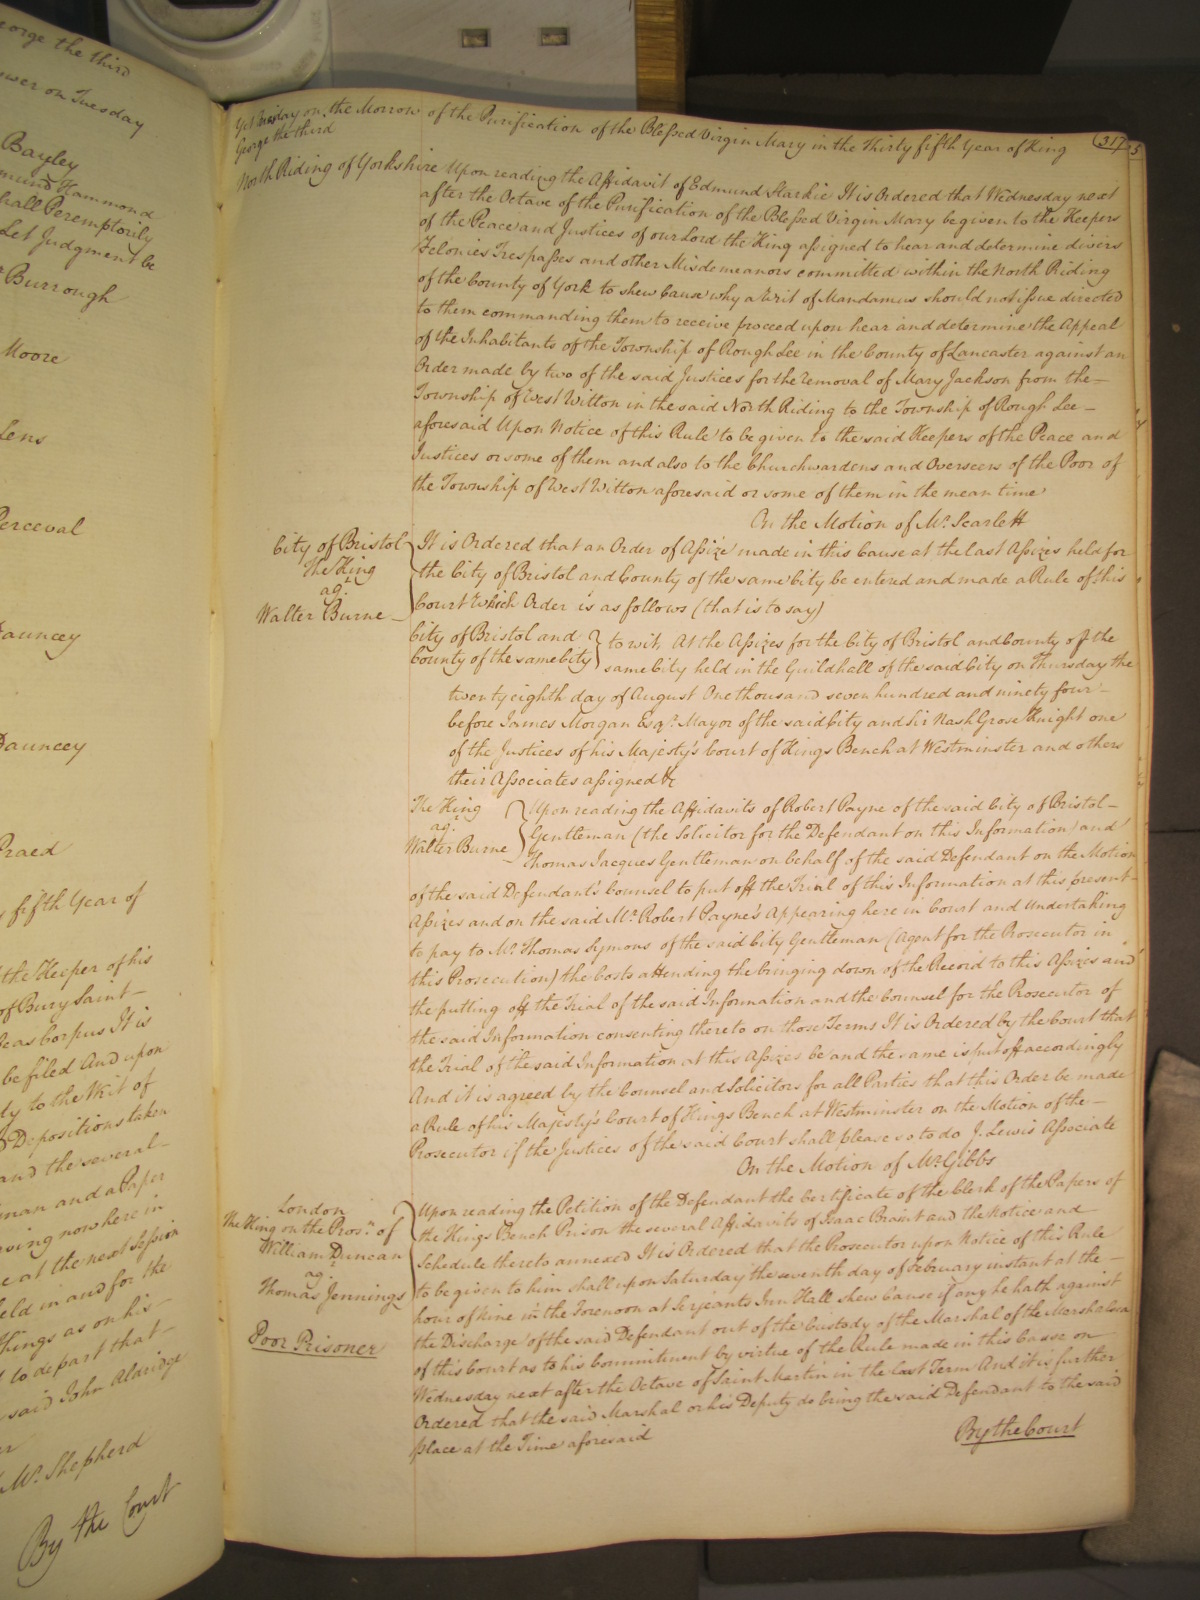 eorge the third
wer on Tuesday
Bayley
mund Hammond
hall Peremptorily
Let Judgment be
Burrough
Moore
Lens
Perceval
auncey
Dauncey
Praed
fifth Year of
the Keeper of his
of Bury Saint
eas Corpus It is
be filed And upon
dy to the Writ of
Depositions taken
and the several
man and a Paper
ving now here in
e at the next Session
eld in and for the
Things as on his
to depart that
said John Aldridge
Mr. Shepherd
By the Court
Yet Tuesday on the Morrow of the Purification of the Blessed Virgin Mary in the Thirty fifth Year of King
George the third
317
North Riding of Yorkshire Upon reading the Affidavit of Edmund Starkie It is Ordered that Wednesday next
after the Octave of the Purification of the Blessed Virgin Mary be given to the Keepers
of the Peace and Justices of our Lord the King assigned to hear and determine divers
Felonies Trespasses and other Misdemeanors committed within the North Riding
of the County of York to shew Cause why a Writ of Mandamus should not issue directed
to them commanding them to receive proceed upon hear and determine the Appeal
of the Inhabitants of the Township of Rough Lee in the County of Lancaster against an
Order made by two of the said Justices for the Removal of Mary Jackson from the
Township of West Witton in the said North Riding to the Township of Rough Lee
aforesaid Upon Notice of this Rule to be given to the said Keepers of the Peace and
Justices or some of them and also to the Churchwardens and Overseers of the Poor of
the Township of West Witton aforesaid or some of them in the mean time
On the Motion of Mr. Scarlett
City of Bristol
The King
agt.
Walter Burne
It is Ordered that an Order of Assize made in this Cause at the last Assizes held for
the City of Bristol and County of the same City be entered and made a Rule of this
Court Which Order is as follows (that is to say)
City of Bristol and
County of the same City
to wit, At the Assizes for the City of Bristol and County of the
same City held in the Guildhall of the said City on Thursday the
twenty eighth day of August One thousand seven hundred and ninety four
before James Morgan Esqr. Mayor of the said City and Sir Nash Grose Knight one
of the Justices of his Majesty's Court of Kings Bench at Westminster and others
their Associates assigned &c
The King
agt.
Walter Burne
Upon reading the Affidavits of Robert Payne of the said City of Bristol
Gentleman (the Solicitor for the Defendant on this Information) and
Thomas Jacques Gentleman on behalf of the said Defendant on the Motion
of the said Defendant's Counsel to put off the Trial of this Information at this present
Assizes and on the said Mr. Robert Payne's Appearing here in Court and Undertaking
to pay to Mr. Thomas Symons of the said City Gentleman (Agent for the Prosecutor in
this Prosecution) the Costs attending the bringing down of the Record to this Assizes and
the putting off the Trial of the said Information and the Counsel for the Prosecutor of
the said Information consenting thereto on those Terms It is Ordered by the Court that
the Trial of the said Information at this Assizes be and the same is put off accordingly
And it is agreed by the Counsel and Solicitors for all Parties that this Order be made
a Rule of his Majesty's Court of Kings Bench at Westminster on the Motion of the
Prosecutor if the Justices of the said Court shall please so to do J. Lewis Associate
On the Motion of Mr. Gibbs
London
The King on the Prosn. of
William Duncan
agt.
Thomas Jennings
Poor Prisoner
Upon reading the Petition of the Defendant the Certificate of the Clerk of the Papers of
the Kings Bench Prison the several Affidavits of Isaac Braint and the Notice and
Schedule thereto annexed It is Ordered that the Prosecutor upon Notice of this Rule
to be given to him shall upon Saturday the seventh day of February instant at the
hour of nine in the Forenoon at Serjeants Inn Hall shew Cause if any he hath against
the Discharge of the said Defendant out of the Custody of the Marshal of the Marshalsea
of this Court as to his Commitment by virtue of the Rule made in this Cause on
Wednesday next after the Octave of Saint Martin in the last Term And it is further
Ordered that the said Marshal or his Deputy do bring the said Defendant to the said
place at the Time aforesaid
By the Court